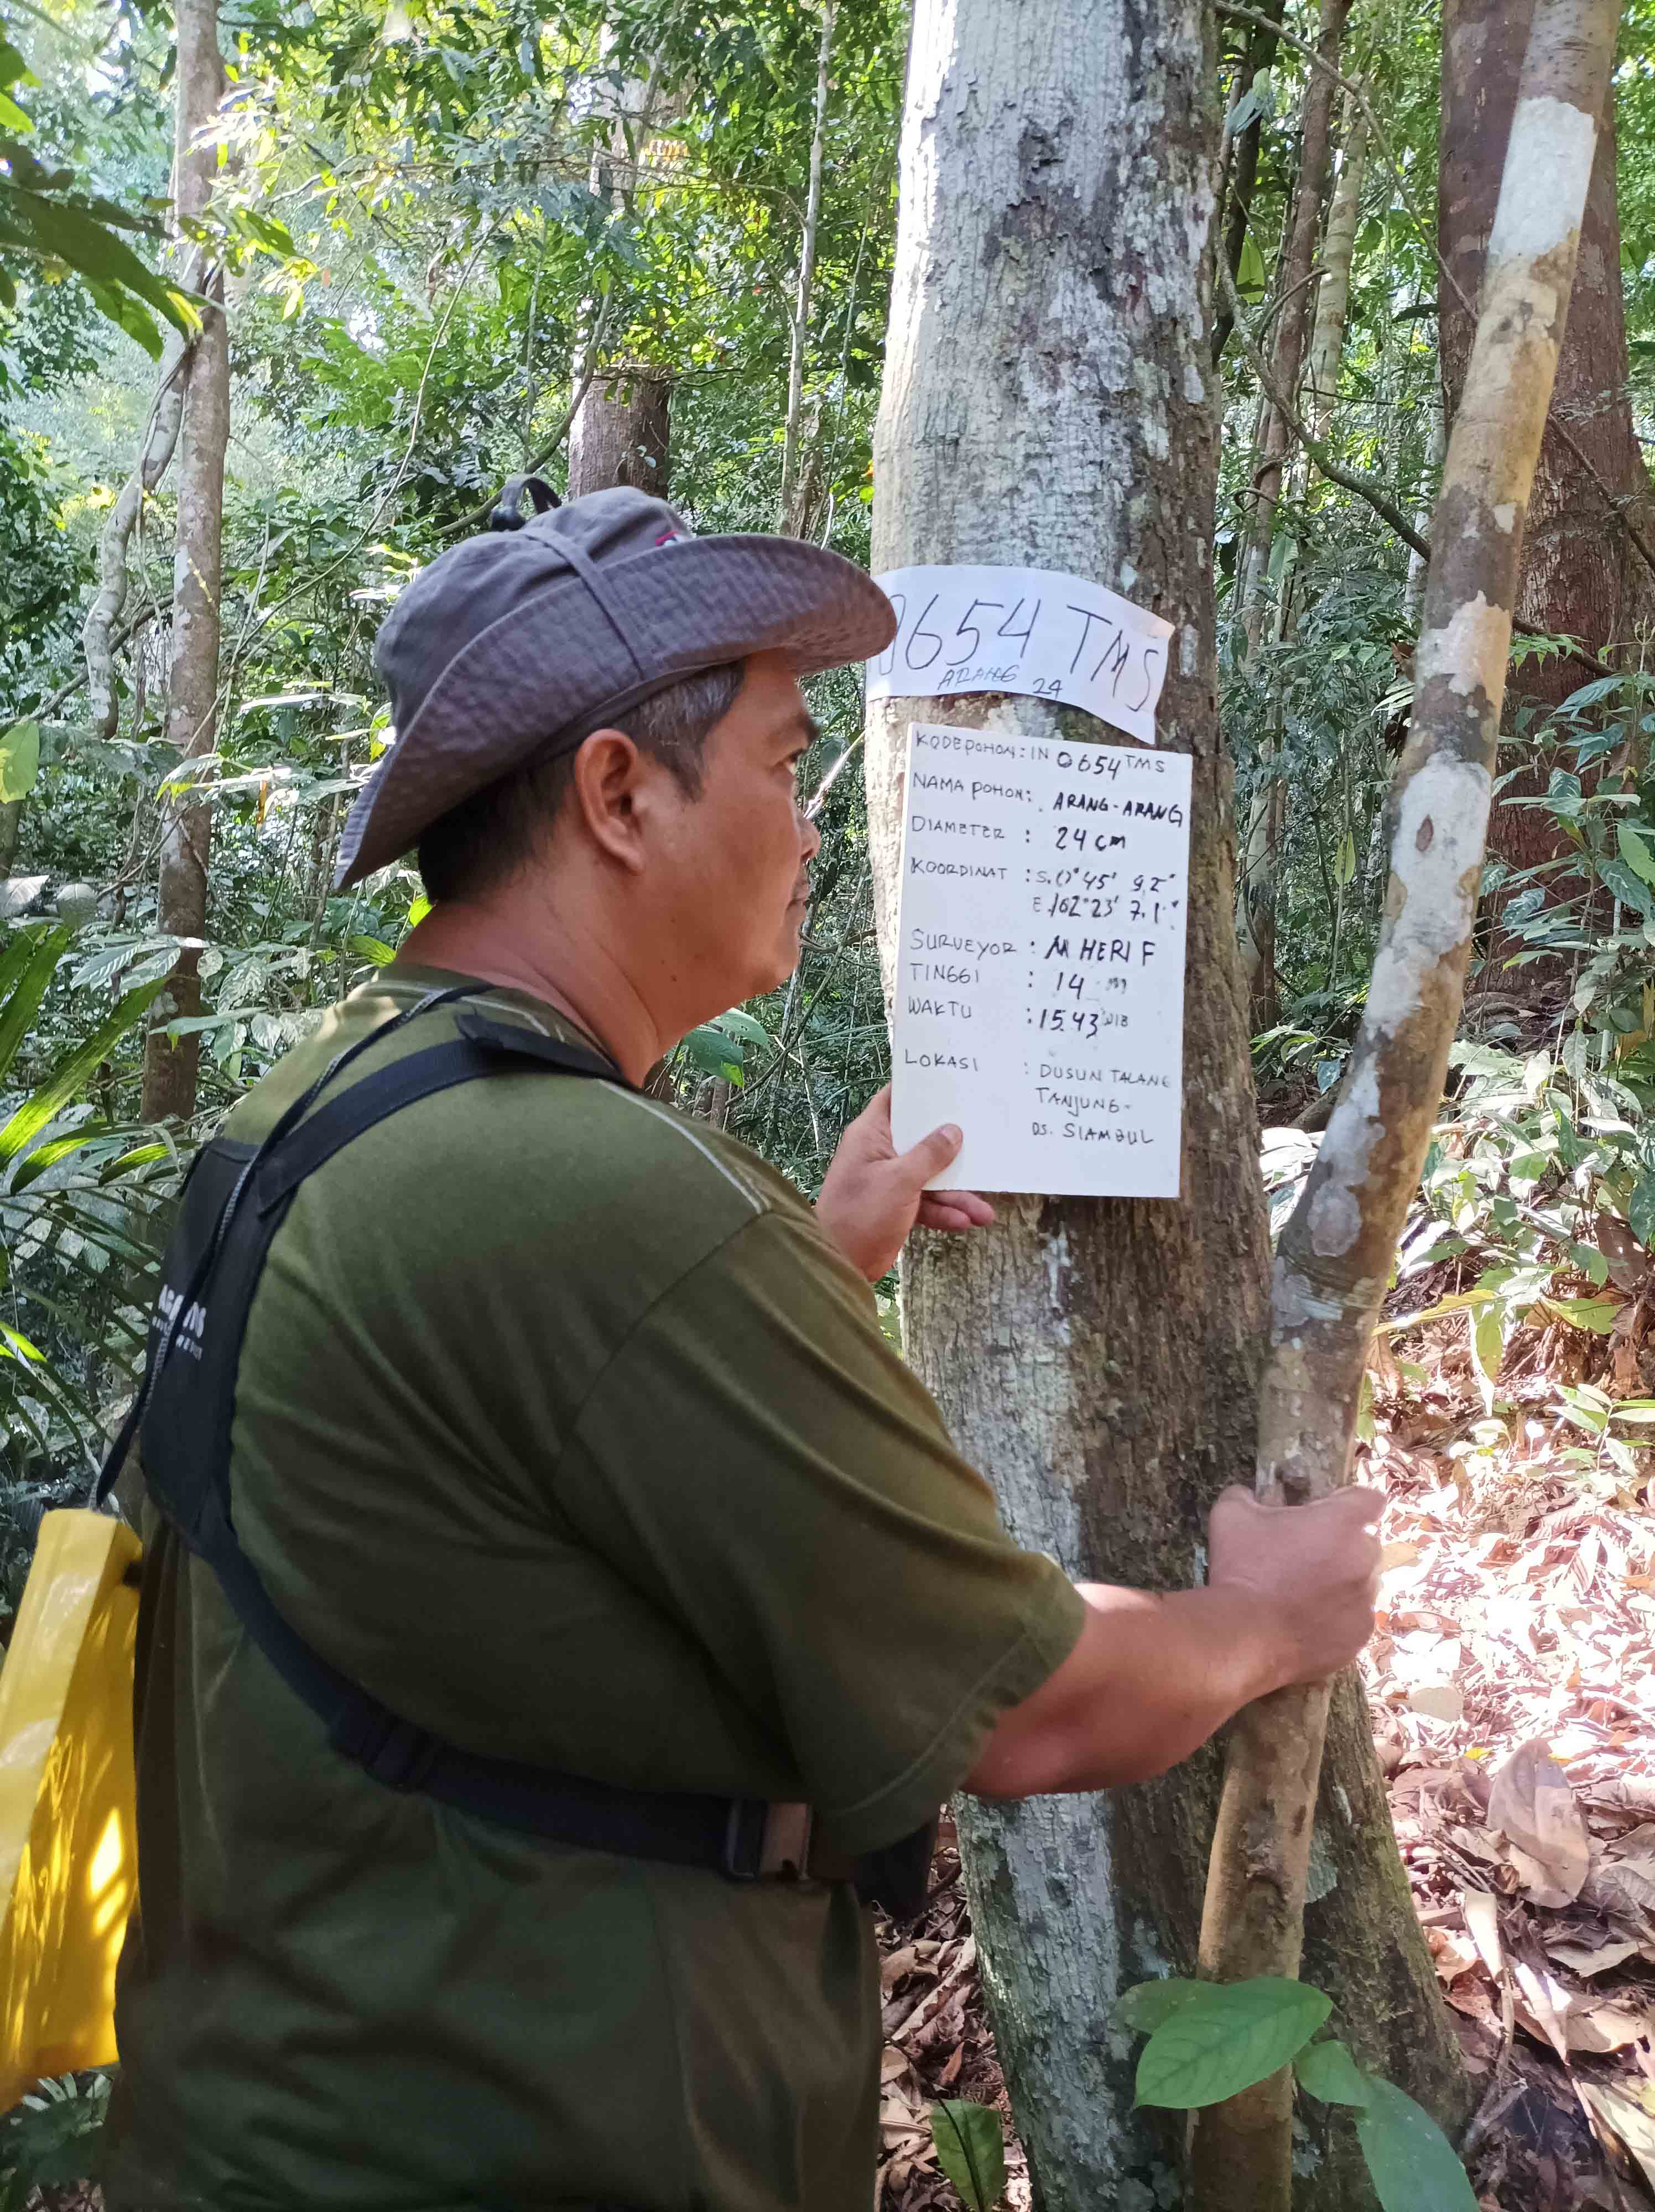 0654 TMS
ARANG 24
KODEPOHON: IN 0654 TMS
NAMA POHON: ARANG-ARANG
DIAMETER : 24 cm
KOORDINAT : S.0° 45' 9.2"
E.102° 23' 7.1"
SURVEYOR : M HERI F
TINGGI : 14 m
WAKTU : 15.43 WIB
LOKASI : DUSUN TALANG
TANJUNG-
DS. SIAMBUL